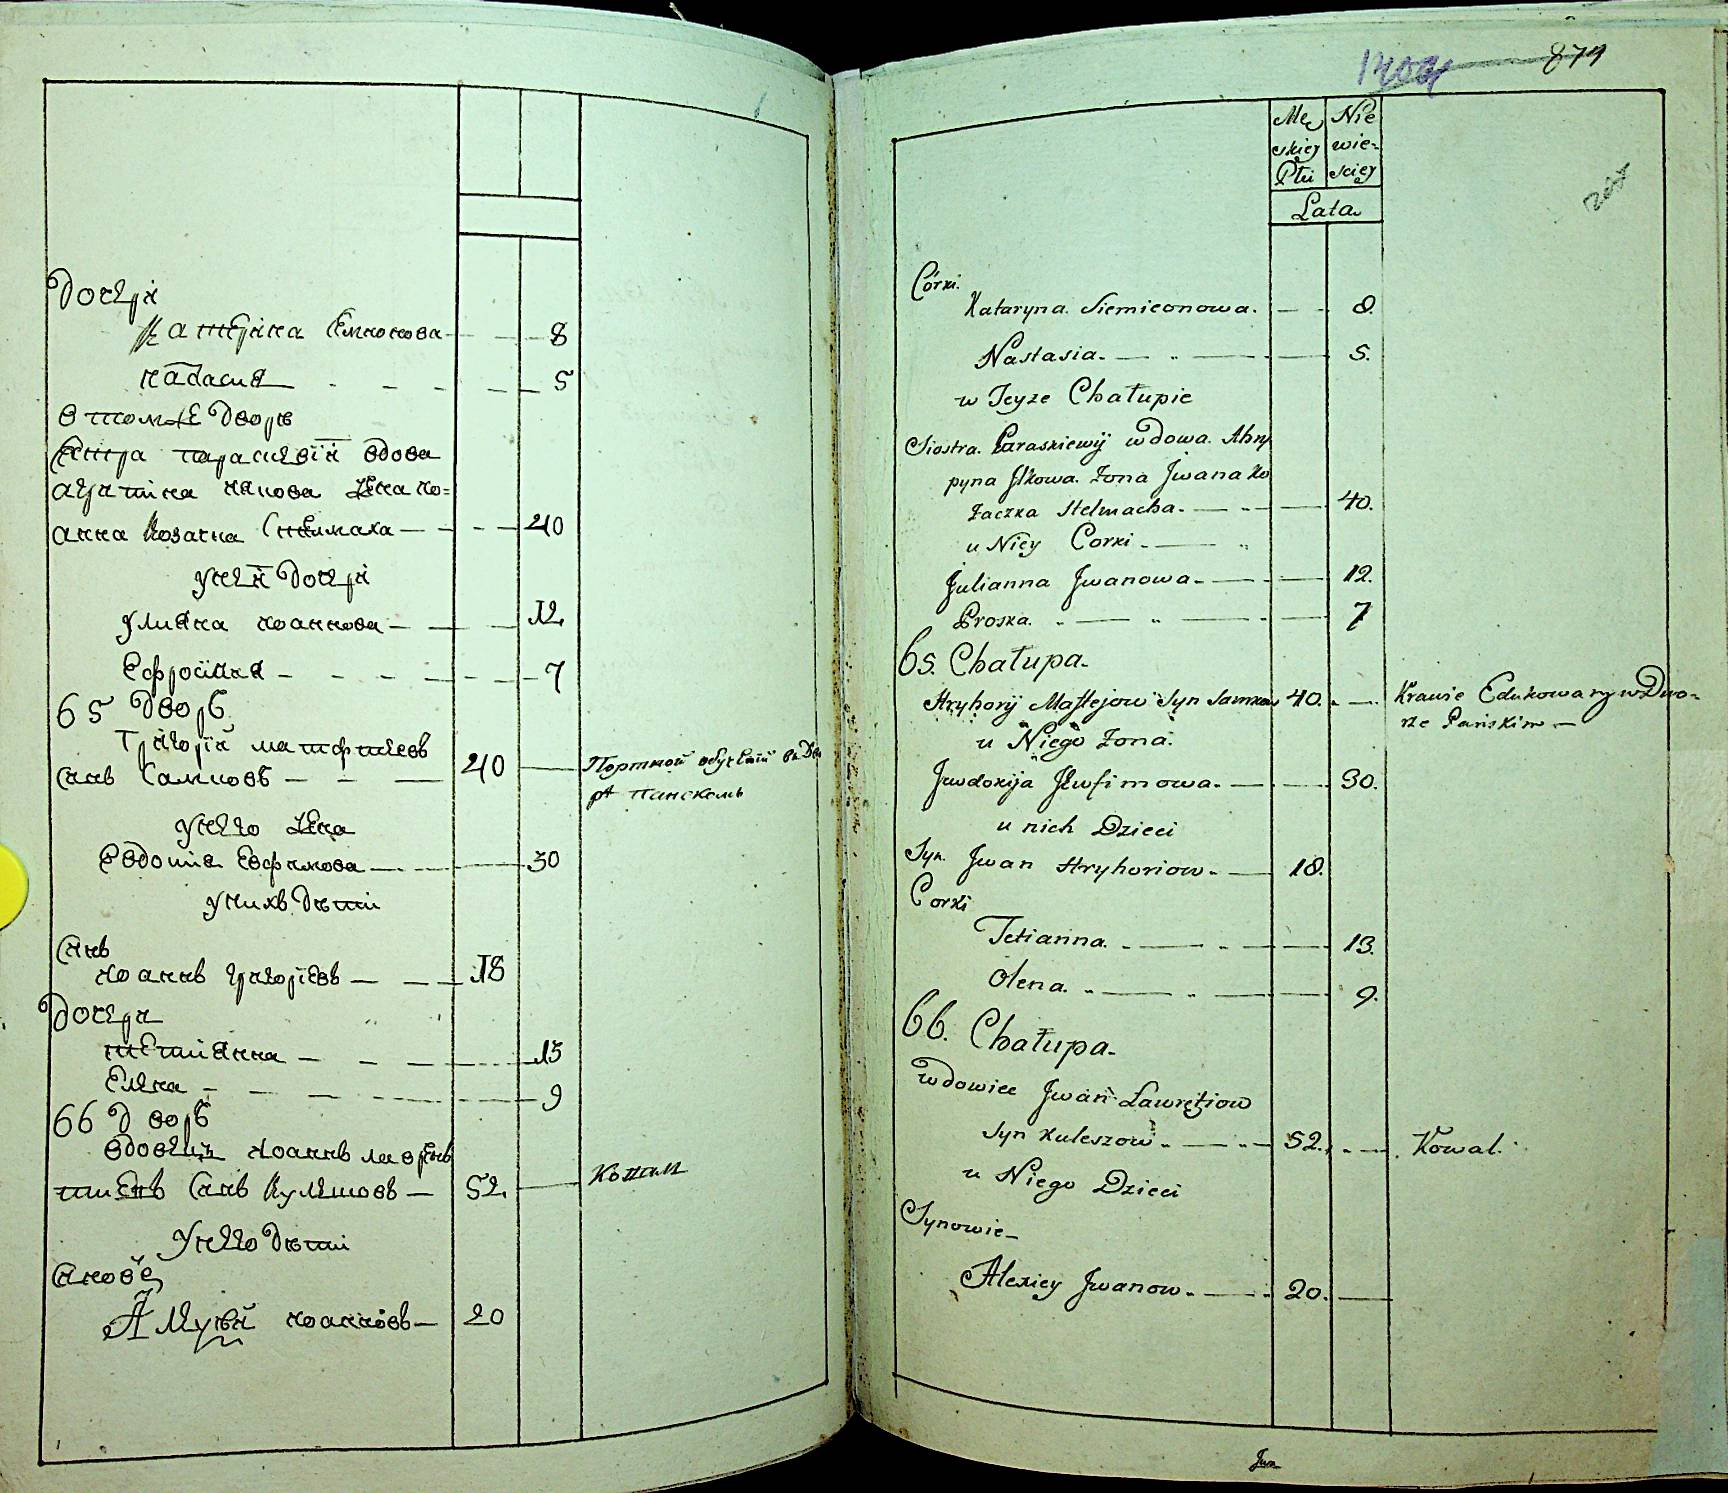 Дочери
Катерина Симонова 8
Настасия 5
в томже дворѣ
Сестра параскевiи вдова
агрипина якова жена ио=
анна Козачка Стелмаха 40
у неи дочери
улияна иоаннова 12
Ефросиния 7
65 Дворъ
Григорiй матфѣевъ
синъ Самковъ 40 Портной обученiй въ Дво
рѣ панскомъ
у него жена
Евдокия Евфимова 30
у нихъ дѣти
Синъ
иоаннъ григориевъ 18
Дочери
тетиянна 13
Елена 9
66 Дворъ
вдовецъ иоаннъ лаврѣнъ
тиевъ Синъ Кулѣшовъ 52 Коваль
у него дѣти
Синове
Алеѯѣй иоанновъ 20
879
Mę Nie
skiey wie-
Płci sciey
Lata
Córki.
Kataryna Siemieonowa. 8.
Nastasia. 5.
w Teyze Chałupie
Siostra Paraskiewij wdowa Ahry
pyna Jlkowa Zona Jwana Ko
zaczka Stelmacha. 40.
u Niey Corki
Julianna Jwanowa 12.
Proska. 7
65. Chałupa.
Hryhorij Mattejow Syn Samkow 40. Krawie Edukowany w Dwo-
rze Pańskim
u Niego Zona.
Jwdokija Jewfimowa. 30.
u nich Dzieci
Syn. Jwan Hryhoriow. 18.
Corki
Tetianna. 13.
Olena. 9.
66. Chałupa.
wdowiec Jwan Lawrętiow
Syn Kuleszow. 52. Kowal.
u Niego Dzieci
Synowie
Alexiey Jwanow. 20.